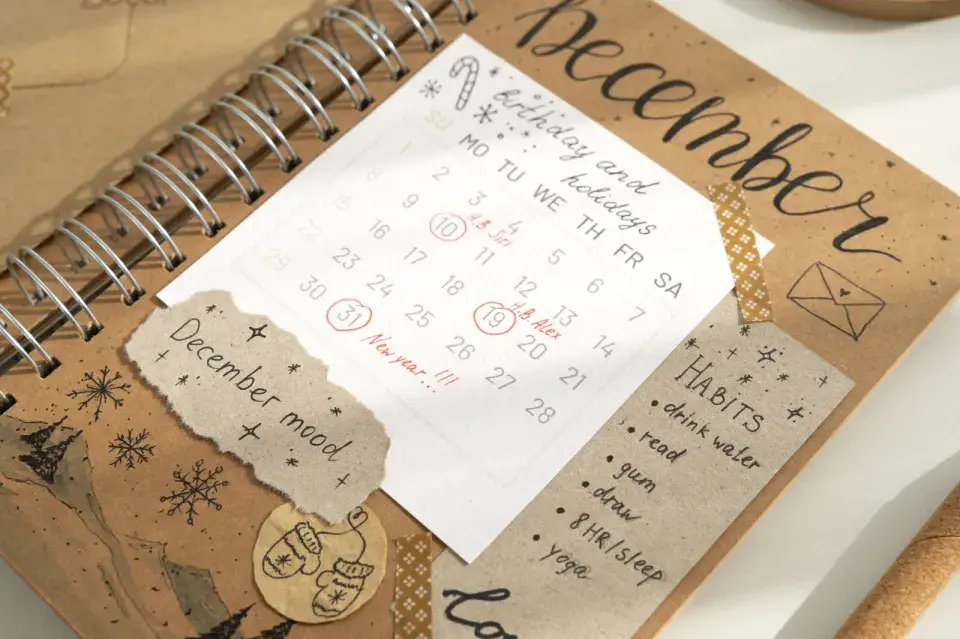 December
Birthday and
holidays
SU MO TU WE TH FR SA
1 2 3 4 5 6 7
8 9 10 11 12 13 14
H.B. Siri
15 16 17 18 19 20 21
H.B. Alex
22 23 24 25 26 27 28
29 30 31
New year...!!!
December mood
HABITS
• drink water
• read
• gum
• draw
• 8HR/sleep
• yoga